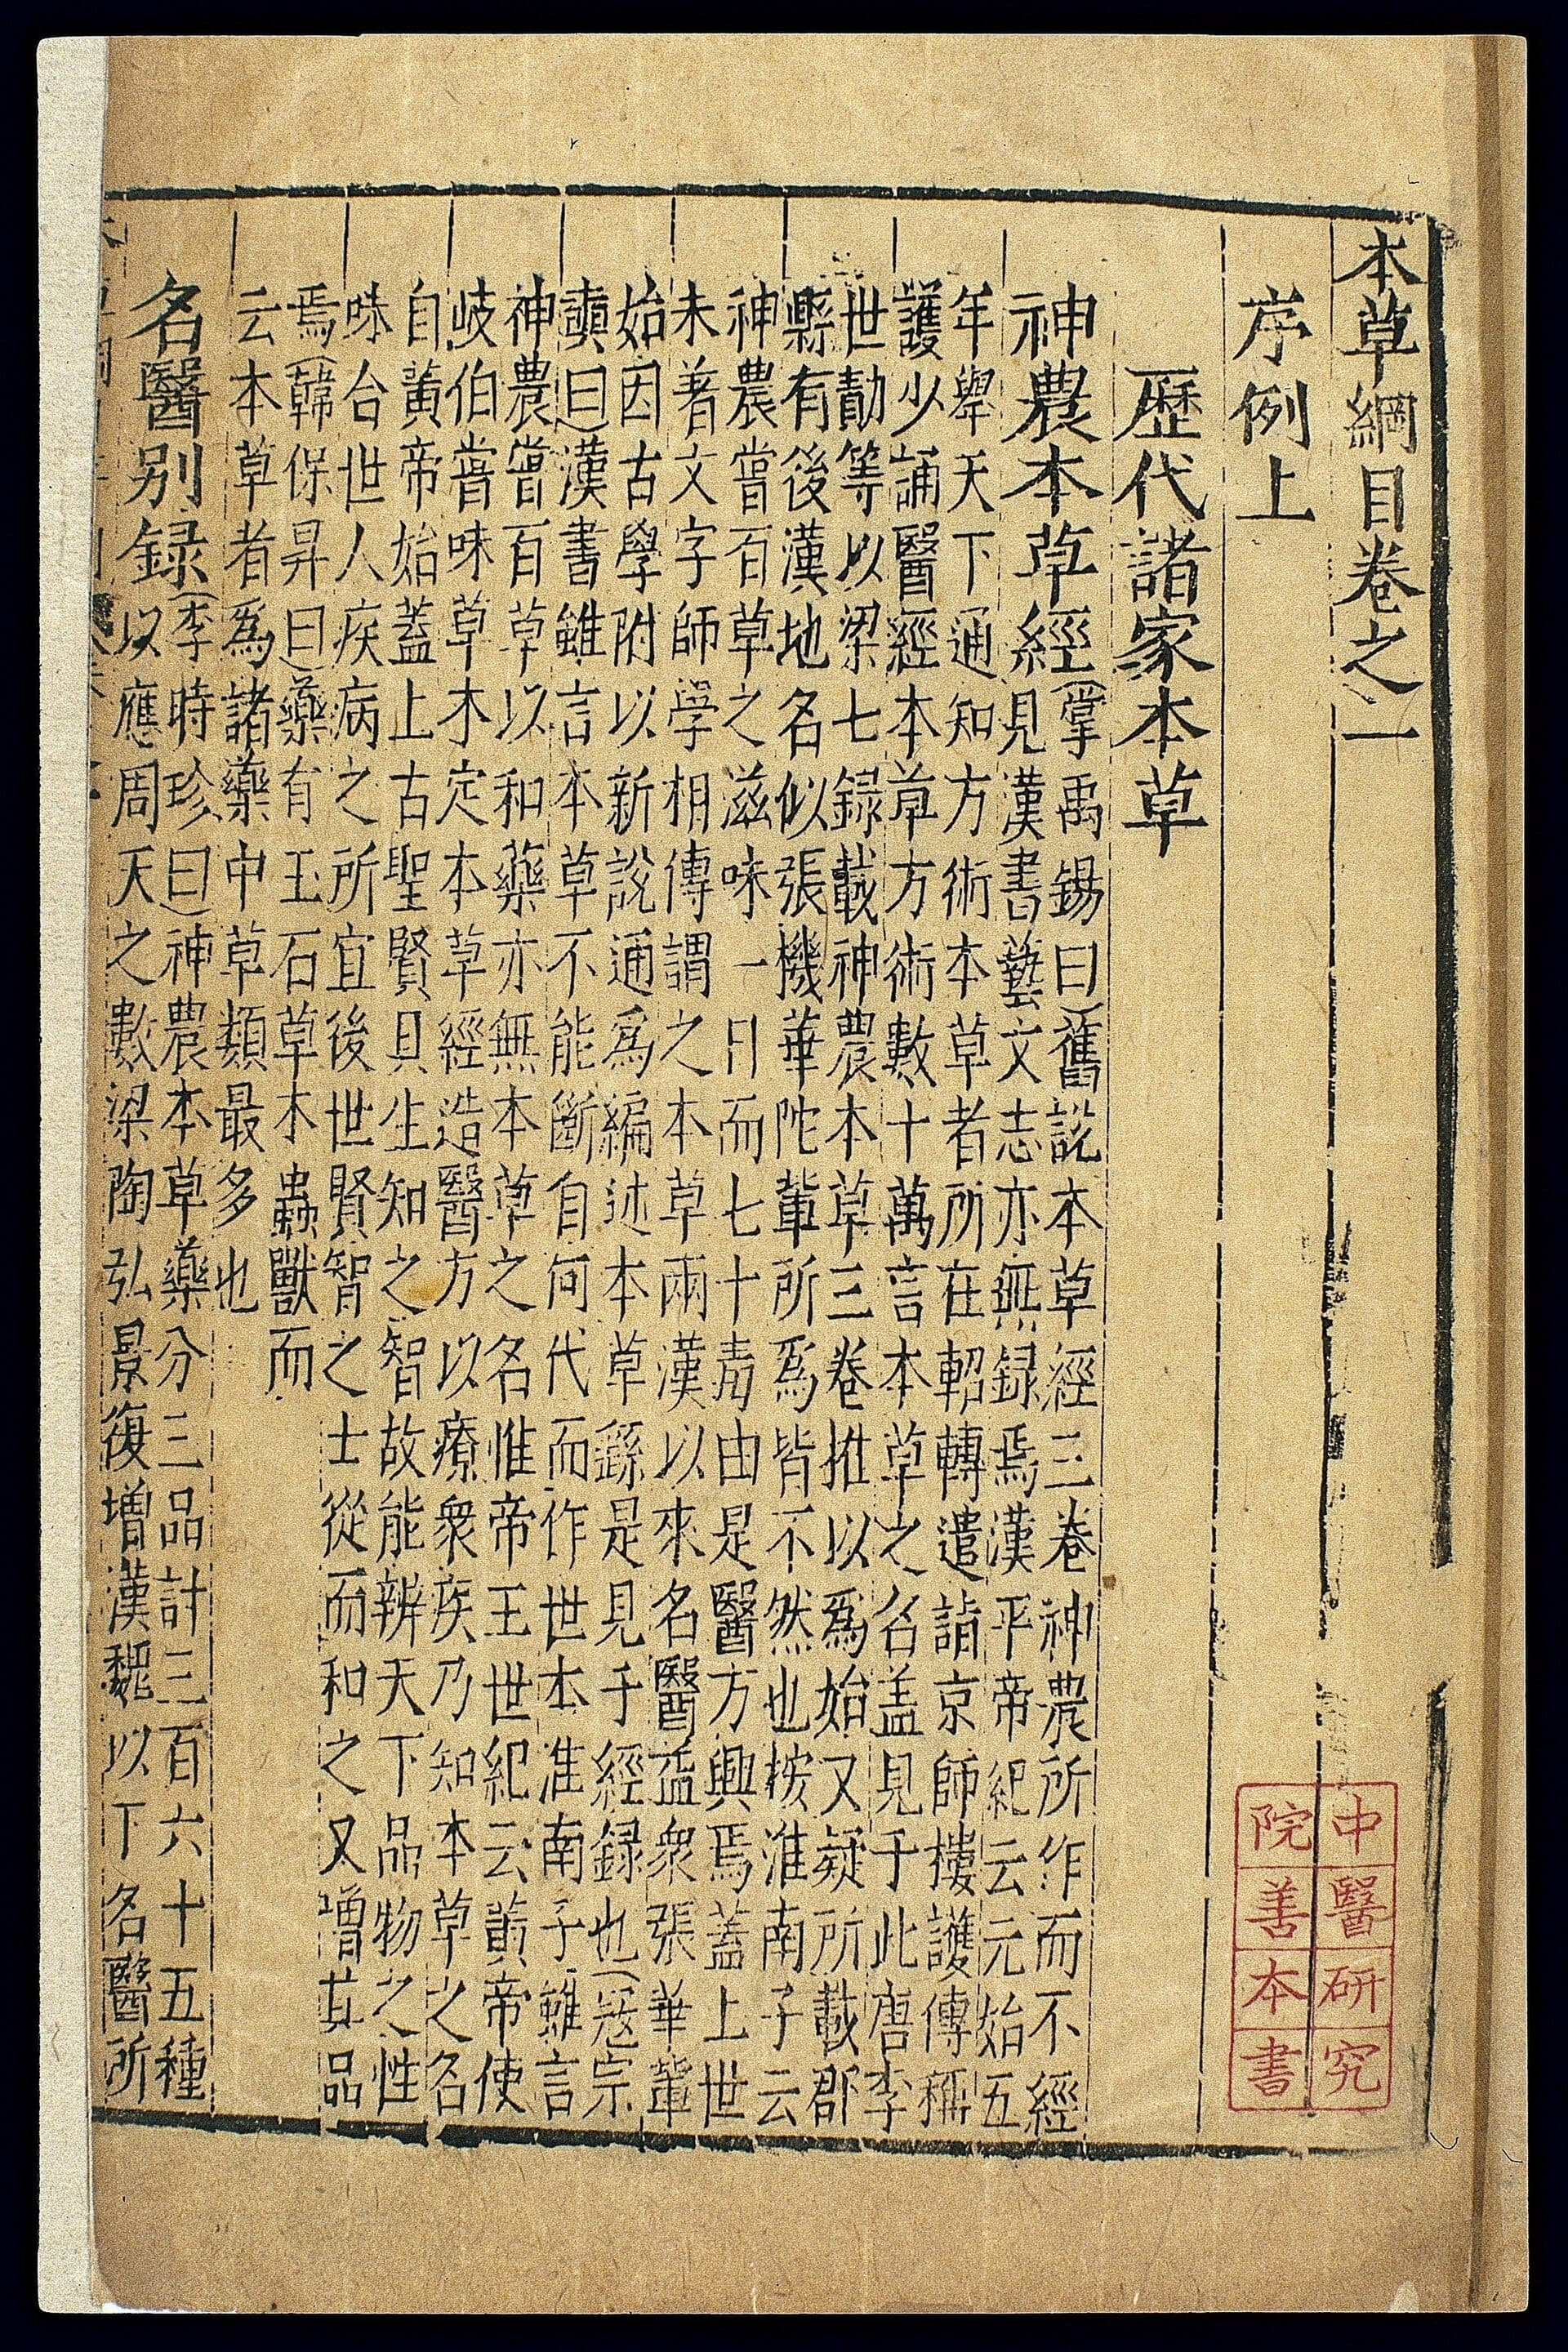 本草綱目卷之一
序例上
歷代諸家本草
神農本草經(掌禹錫曰)舊說本草經三卷神農所作而不經
見漢書藝文志亦無録焉漢平帝紀云元始五
年舉天下通知方術本草者所在軺轉遣詣京師樓護傳稱
護少誦醫經本草方術數十萬言本草之名盖見于此唐李
世勣等以梁七録載神農本草三卷推以爲始又疑所載郡
縣有後漢地名似張機華陀輩所爲皆不然也按淮南子云
神農嘗百草之滋味一日而七十毒由是醫方興焉蓋上世
未著文字師學相傳謂之本草兩漢以來名醫益衆張華輩
始因古學附以新說通爲編述本草繇是見于經録也(宼宗
奭曰)漢書雖言本草不能斷自何代而作世本淮南子雖言
神農嘗百草以和藥亦無本草之名惟帝王世紀云黄帝使
岐伯嘗味草木定本草經造醫方以療衆疾乃知本草之名
自黄帝始蓋上古聖賢具生知之智故能辨天下品物之性
味合世人疾病之所宜後世賢智之士從而和之又增其品
焉(韓保昇曰)藥有玉石草木蟲獸而
云本草者爲諸藥中草類最多也
名醫别録(李時珍曰)神農本草藥分三品計三百六十五種
以應周天之數梁陶弘景復增漢魏以下名醫所
中醫研究
院善本書